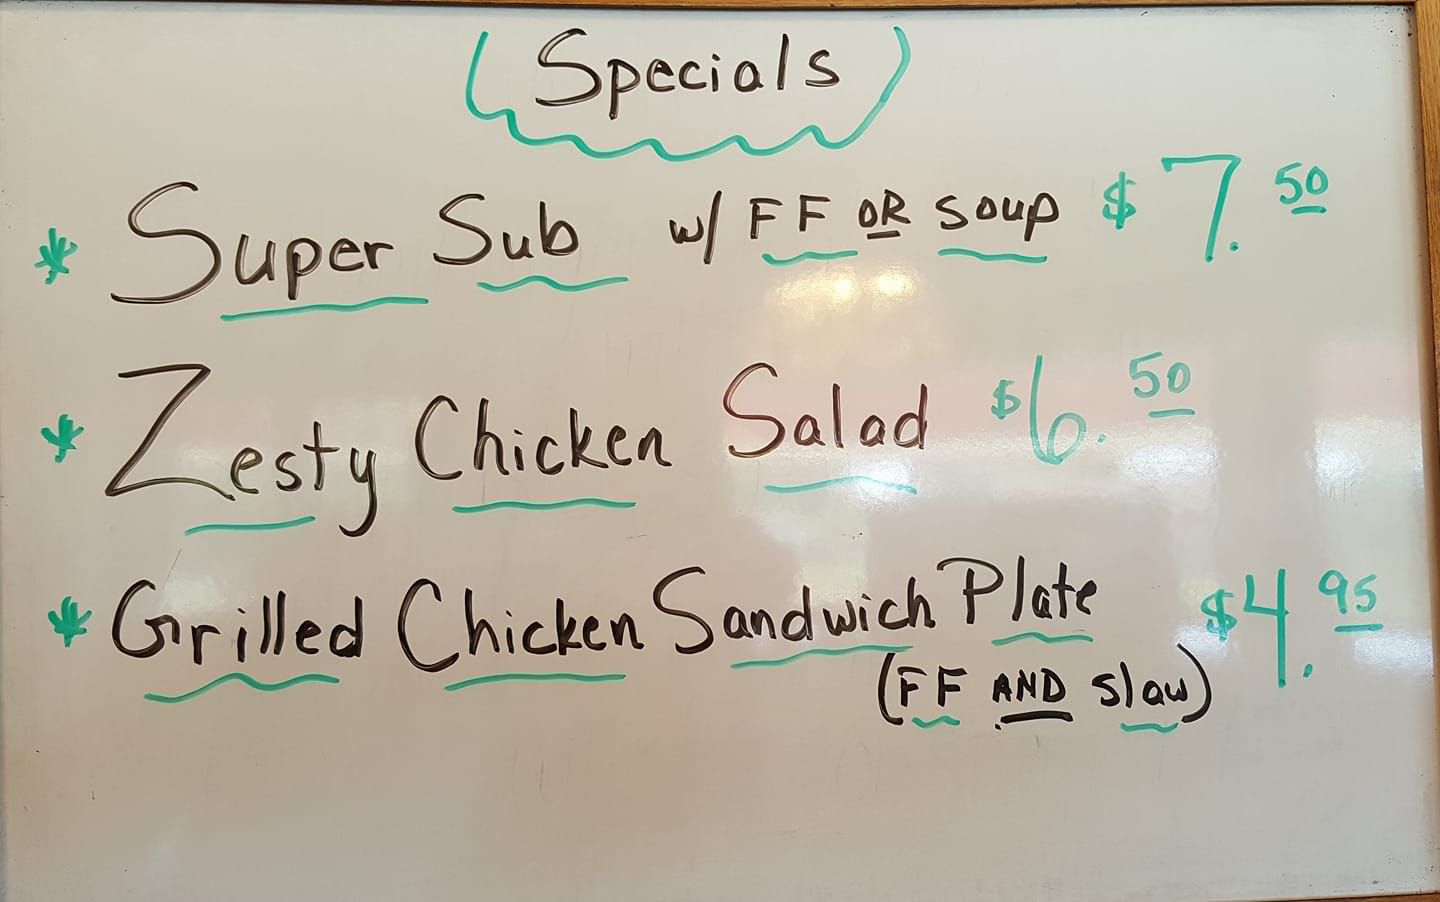 Specials
* Super Sub w/ FF OR soup $7.50
* Zesty Chicken Salad $6.50
* Grilled Chicken Sandwich Plate $4.95
(FF AND slaw)